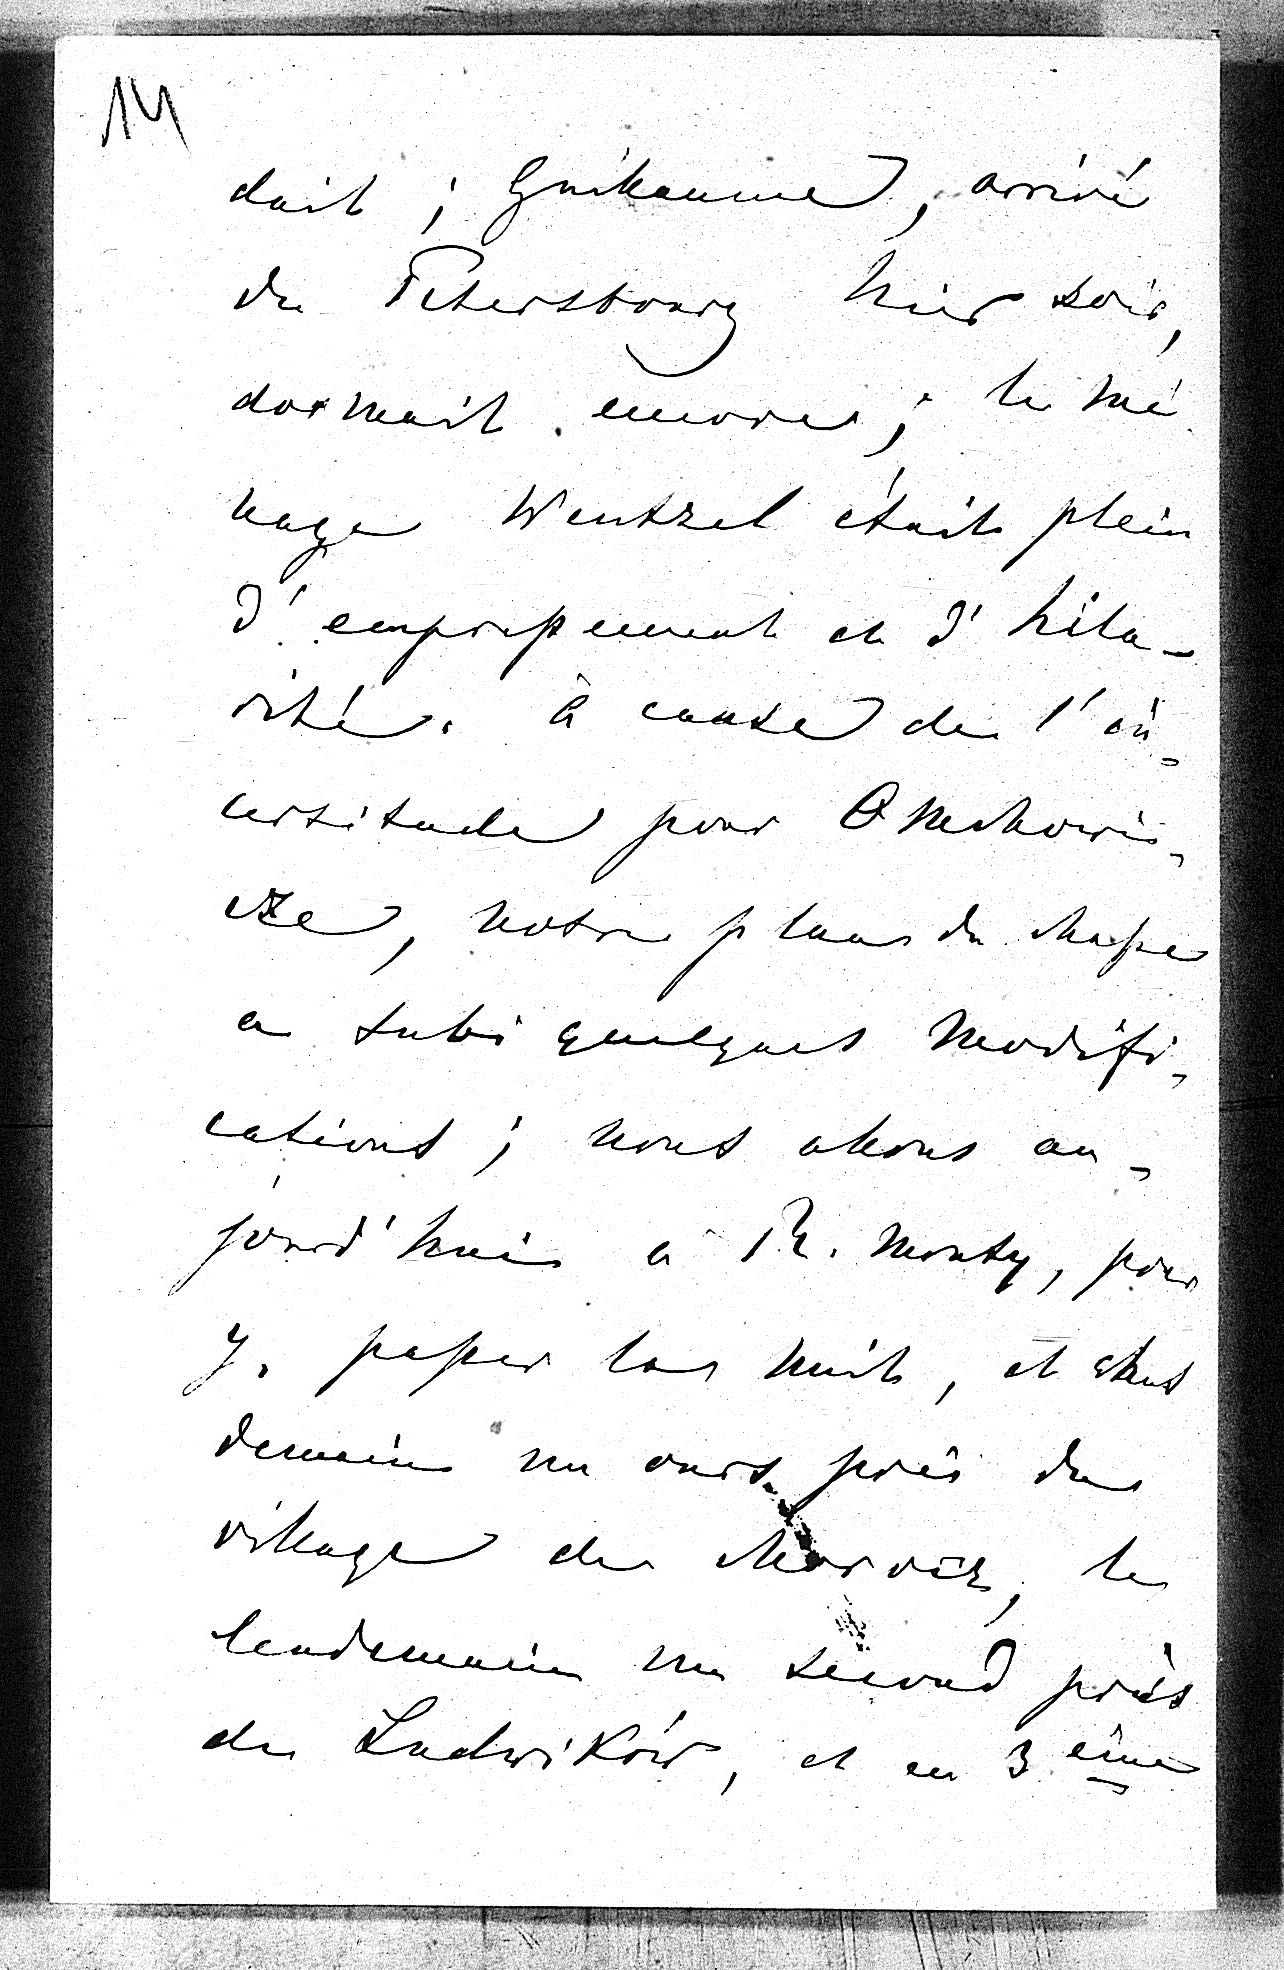 14
dait ; Guillaume, arrivé
de Petersbourg hier soir,
dormait encore ; le mé
nage Wentzel était plein
d'empressement et d'hila-
rité. à cause de l'in-
certitude pour Omehowi-
cze, notre plan de chasse
a subi quelques modifi-
cations ; nous allons au-
jourd'hui à R. Monty, pour
y passer la nuit, et
demain un ours près du
village de Morocz, le
lendemain un second près
de Ludwików, et en 3 ème